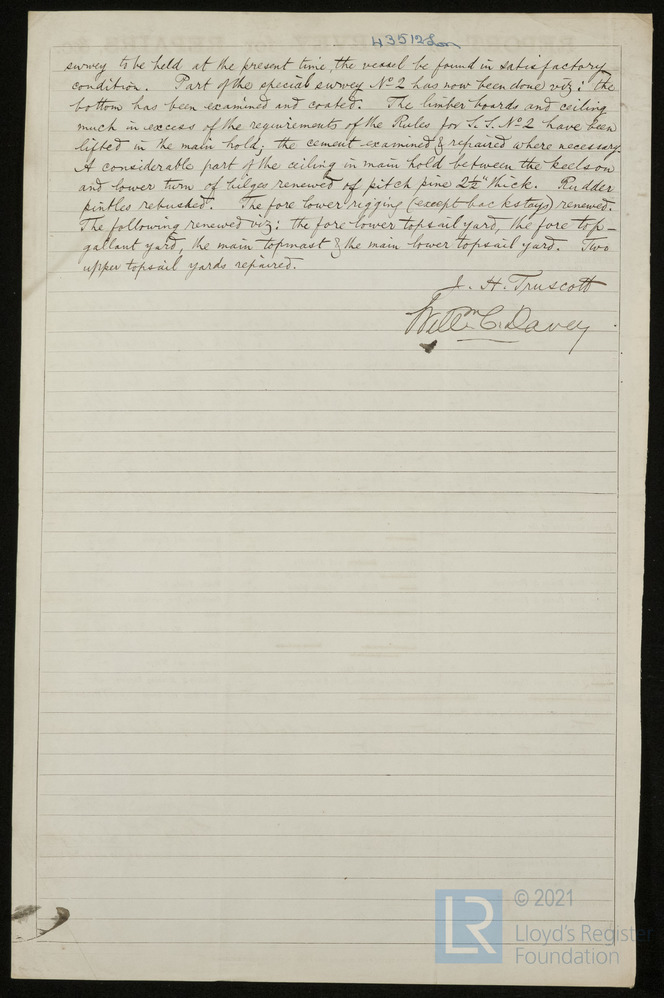 43512 Lon
survey to be held at the present time, the vessel be found in satisfactory
condition. Part of the special survey No 2 has now been done viz: the
bottom has been examined and coated. The limber boards and ceiling
much in excess of the requirements of the Rules for S.S. No 2 have been
lifted in the main hold; the cement examined & repaired where necessary.
A considerable part of the ceiling in main hold between the keelson
and lower turn of bilges renewed of pitch pine 2½" thick. Rudder
pintles rebushed. The fore lower rigging (except backstays) renewed.
The following renewed viz: the fore lower topsail yard, the fore top-
gallant yard, the main topmast & the main lower topsail yard. Two
upper topsail yards repaired.
J. H. Truscott
Willm C. Davey
LR
© 2021
Lloyd's Register
Foundation